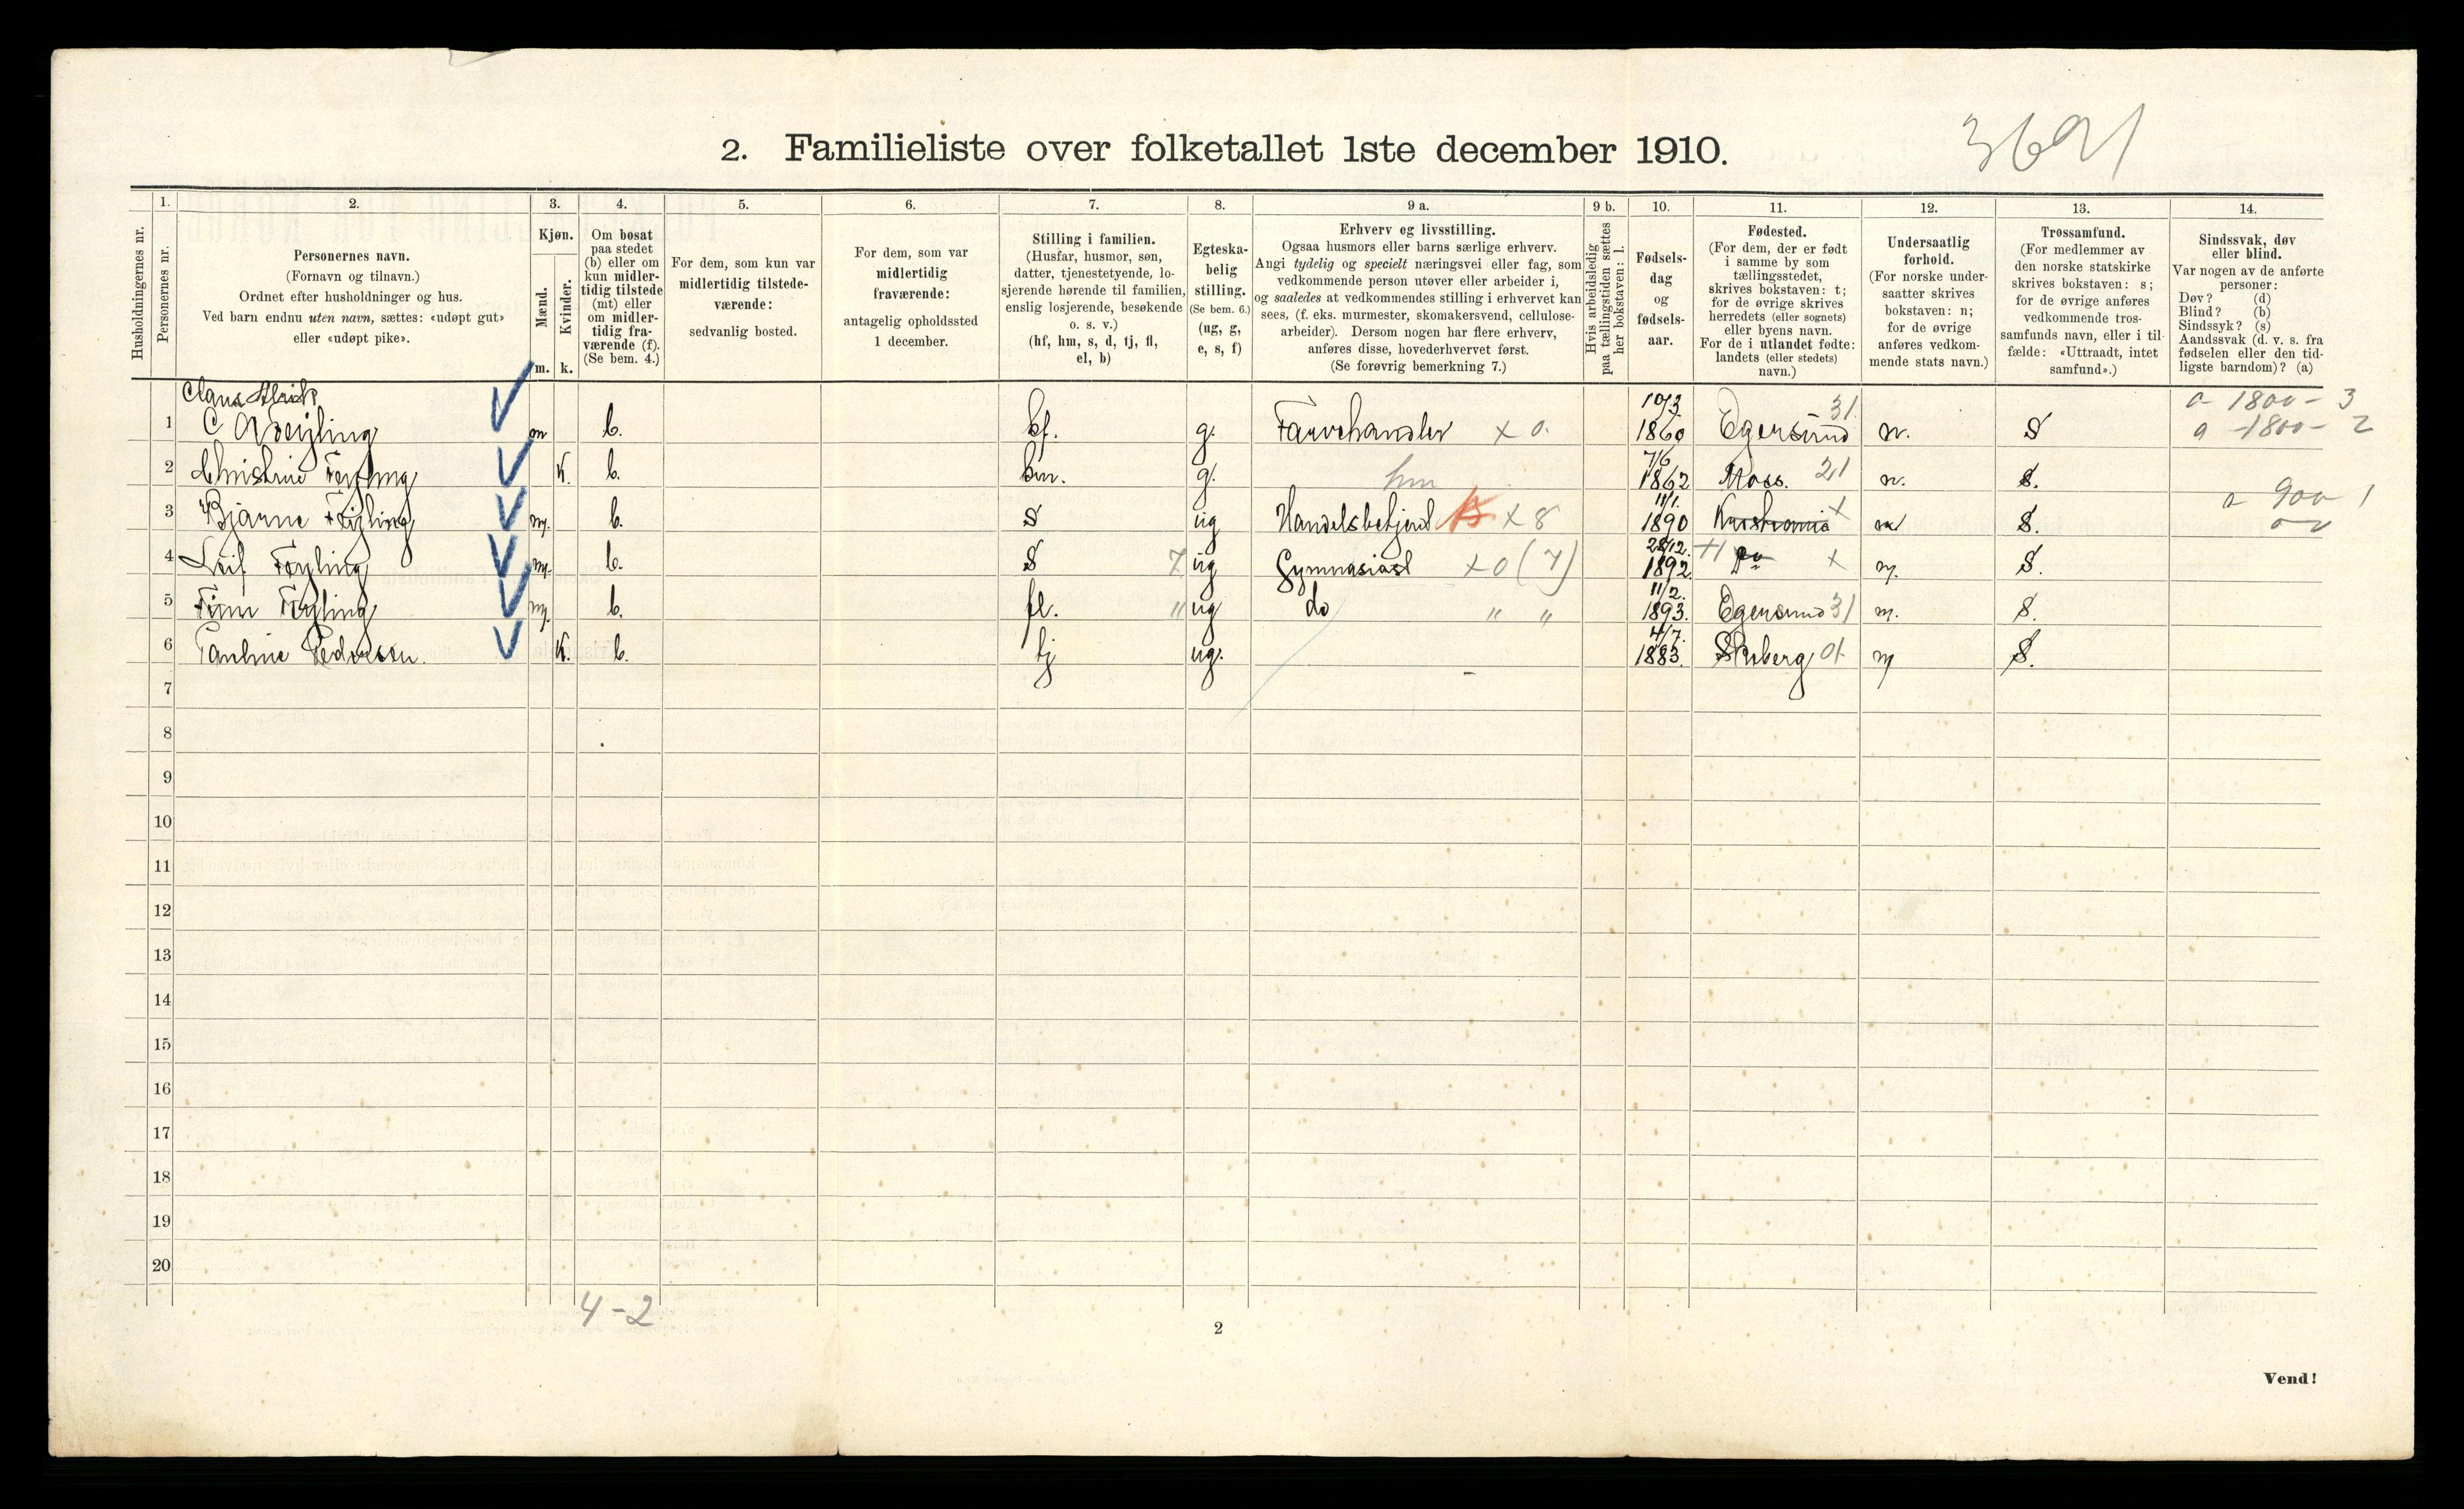 3691
2. Familieliste over folketallet 1ste december 1910.
Husholdningernes nr.
1.
Personernes nr.
2.
Personernes navn.
(Fornavn og tilnavn.)
Ordnet efter husholdninger og hus.
Ved barn endnu uten navn, sættes: «udøpt gut»
eller «udøpt pike».
3.
Kjøn.
Mænd.
Kvinder.
m.
k.
4.
Om bosat
paa stedet
(b) eller om
kun midler-
tidig tilstede
(mt) eller
om midler-
tidig fra-
værende (f).
(Se bem. 4.)
5.
For dem, som kun var
midlertidig tilstede-
værende:
sedvanlig bosted.
6.
For dem, som var
midlertidig
fraværende:
antagelig opholdssted
1 december.
7.
Stilling i familien.
(Husfar, husmor, søn,
datter, tjenestetyende, lo-
sjerende hørende til familien,
enslig losjerende, besøkende
o. s. v.)
(hf, hm, s, d, tj, fl,
el, b)
8.
Egteska-
belig
stilling.
(Se bem. 6.)
(ug, g,
e, s, f)
9 a.
Erhverv og livsstilling.
Ogsaa husmors eller barns særlige erhverv.
Angi tydelig og specielt næringsvei eller fag, som
vedkommende person utøver eller arbeider i,
og saaledes at vedkommendes stilling i erhvervet kan
sees, (f. eks. murmester, skomakersvend, cellulose-
arbeider). Dersom nogen har flere erhverv,
anføres disse, hovederhvervet først.
(Se forøvrig bemerkning 7.)
9 b.
Hvis arbeidsledig
paa tællingstiden sættes
her bokstaven: l.
10.
Fødsels-
dag
og
fødsels-
aar.
11.
Fødested.
(For dem, der er født
i samme by som
tællingsstedet,
skrives bokstaven: t;
for de øvrige skrives
herredets (eller sognets)
eller byens navn.
For de i utlandet fødte:
landets (eller stedets)
navn.)
12.
Undersaatlig
forhold.
(For norske under-
saatter skrives
bokstaven: n;
for de øvrige
anføres vedkom-
mende stats navn.)
13.
Trossamfund.
(For medlemmer av
den norske statskirke
skrives bokstaven: s;
for de øvrige anføres
vedkommende tros-
samfunds navn, eller i til-
fælde: «Uttraadt, intet
samfund».)
14.
Sindssvak, døv
eller blind.
Var nogen av de anførte
personer:
Døv? (d)
Blind? (b)
Sindssyk? (s)
Aandssvak (d. v. s. fra
fødselen eller den tid-
ligste barndom)? (a)
Claus 10/3 31 a 1800 - 3
1 C m b. hf. g. Farvehandler x 0. 1860 Egersund n. S a 1800 - 2
7/6
2 Christine K. b. hm. g. hm 1862 Moss. 21 n. S.
11/1. a 900 1
3 Bjarne m. b. S ug Handelsbetjent x 8 1890 Kristiania x n S.
28/12.
4 Leif m. b. S 7 ug Gymnasiast x 0 (7) 1892 Do x n. S.
11/2.
5 Finn m. b. fl. " ug do " " 1893. Egersund 31 n. S.
4/7.
6 Pauline Pedersen. K. b. tj ug. - 1883. 01 n S.
7
8
9
10
11
12
13
14
15
16
17
18
19
20
4-2
2
Vend!